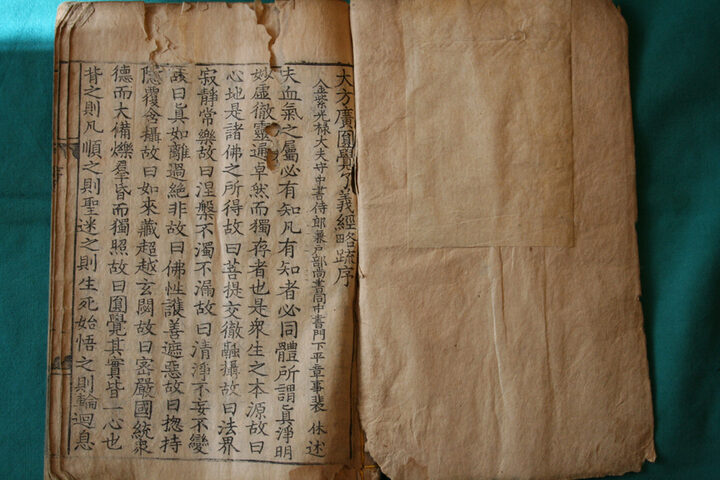 大方廣圓覺了義經略疏序
金紫光祿大夫守中書侍郎兼戶部尚書同中書門下平章事裴休述
夫血氣之屬必有知凡有知者必同體所謂眞淨明
妙虛徹靈通卓然而獨存者也是衆生之本源故曰
心地是諸佛之所得故曰菩提交徹融攝故曰法界
寂靜常樂故曰涅槃不濁不漏故曰清淨不妄不變
故曰眞如離過絕非故曰佛性護善遮惡故曰揔持
隱覆含攝故曰如來藏超越玄閟故曰密嚴國統衆
德而大備爍羣昏而獨照故曰圓覺其實皆一心也
背之則凡順之則聖迷之則生死始悟之則輪迴息